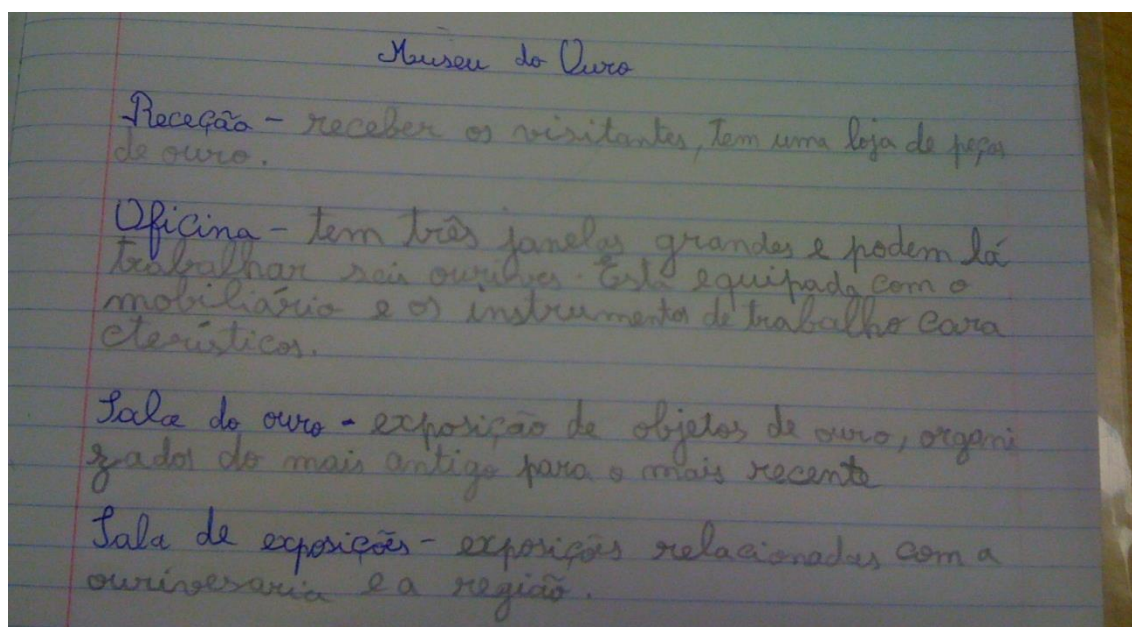 Museu do Ouro
Receção - receber os visitantes, tem uma loja de peças
de ouro.
Oficina - tem três janelas grandes e podem lá
trabalhar seis ourives. Está equipada com o
mobiliário e os instrumentos de trabalho cara
cterísticos.
Sala do ouro - exposição de objetos de ouro, organi
zados do mais antigo para o mais recente
Sala de exposições - exposições relacionadas com a
ourivesaria e a região.